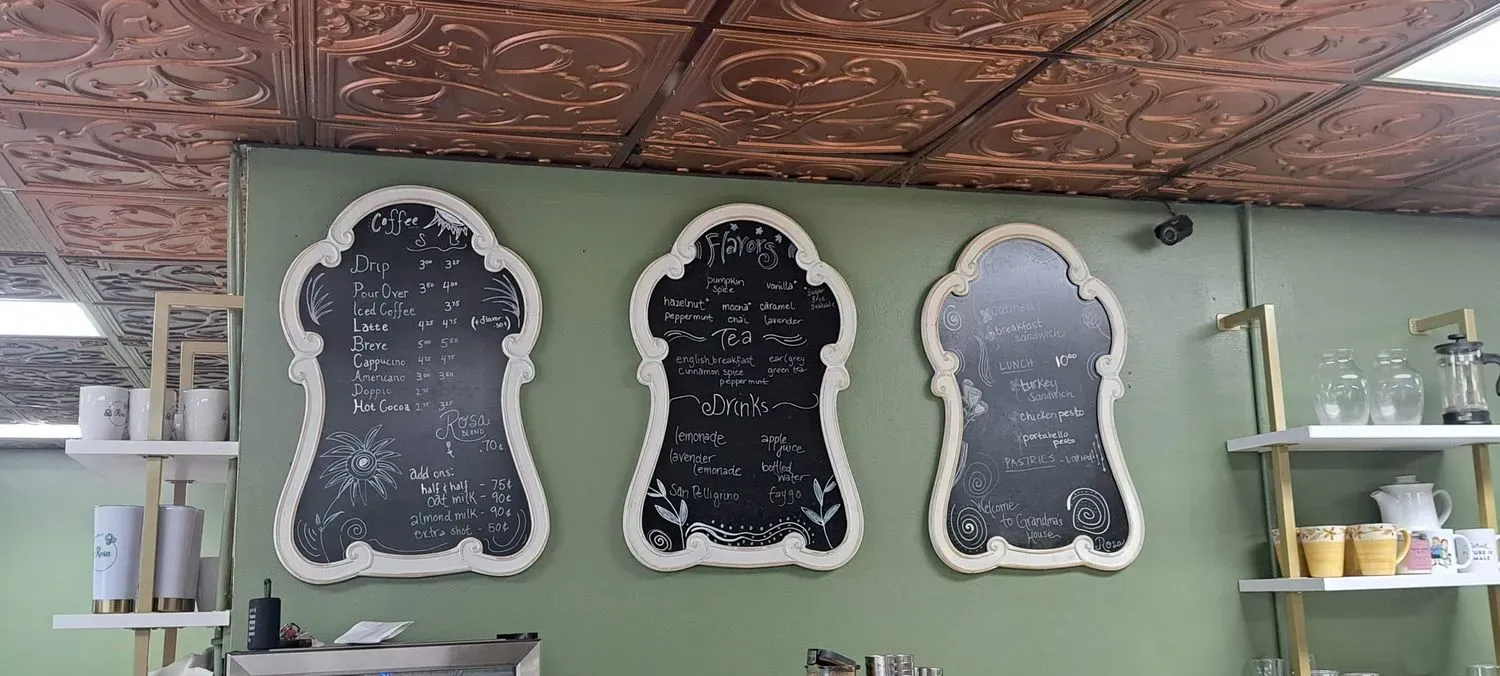 Coffee
S L
Drip 3⁰⁰ 3²⁵
Pour Over 3⁵⁰ 4⁰⁰
Iced Coffee 3⁷⁵
Latte 4²⁵ 4⁷⁵ (+flavor .50¢)
Breve 5⁰⁰ 5⁵⁰
Cappucino 4²⁵ 4⁷⁵
Americano 3⁰⁰ 3⁵⁰
Doppio 2⁷⁵
Hot Cocoa 2⁷⁵ 3²⁵
Rosa
BLEND
.70¢
add ons:
half & half - 75¢
oat milk - 90¢
almond milk - 90¢
extra shot - 50¢
Flavors
pumpkin spice vanilla*
hazelnut* mocha* caramel
sugar free available
peppermint chai lavender
Tea
english breakfast earl grey
cinnamon spice green tea
peppermint
Drinks
lemonade apple juice
lavender lemonade bottled water
San Pelligrino faygo
oatmeal
breakfast
sandwich
LUNCH 10⁰⁰
turkey
sandwich
chicken pesto
portabello
pesto
PASTRIES - varied!
Welcome
to Grandma's
House
Rosa
Rosa